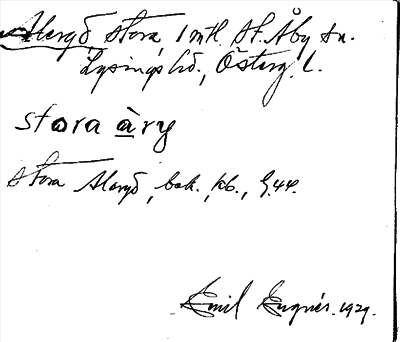 Alaryd, Stora, 1 mtl. St. Åby sn.
Lysings hd., Österg. l.
stora àry
Stora Alaryd, bok., kb., G.44.
Emil Engnér. 1929.